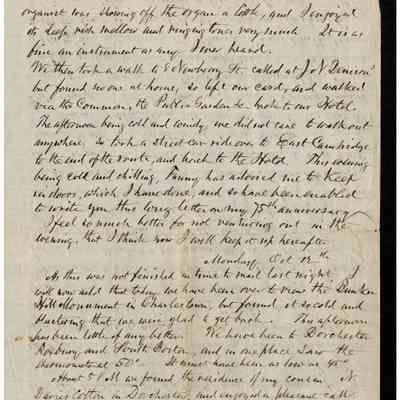 organist was showing off the organ a little, and I enjoyed
its deep rich mellow and ringing tones very much. It is as
fine an instrument as any I ever heard.
We then took a walk to 8 Newberry St. called at J. N. Denison's
but found no one at home, so left our card, and walked
via the Common, the Public Garden &c back to our Hotel.
The afternoon being cold and windy, we did not care to walk out
anywhere. So took a street car ride over to East Cambridge
to the end of the route, and back to the Hotel. This evening
being cold and chilling, Fanny has advised me to keep
indoors, which I have done, and so have been enabled
to write you this long letter on my 75th anniversary.
I feel so much better for not venturing out in the
evening, that I think now I will keep it up hereafter.
Monday, Oct 12th
As this was not finished in time to mail last night, I
will now add that today, we have been over to view the Bunker
Hill Monument in Charlestown, but found it so cold and
blustering that we were glad to get back. This afternoon
has been little if any better. We have been to Dorchester
Roxbury and South Boston, and in one place saw the
thermometer at 50°. It must have been as low as 45°
About 5 P.M. we found the residence of my cousin N.
Davies Cotton in Dorchester, and enjoyed a pleasant call